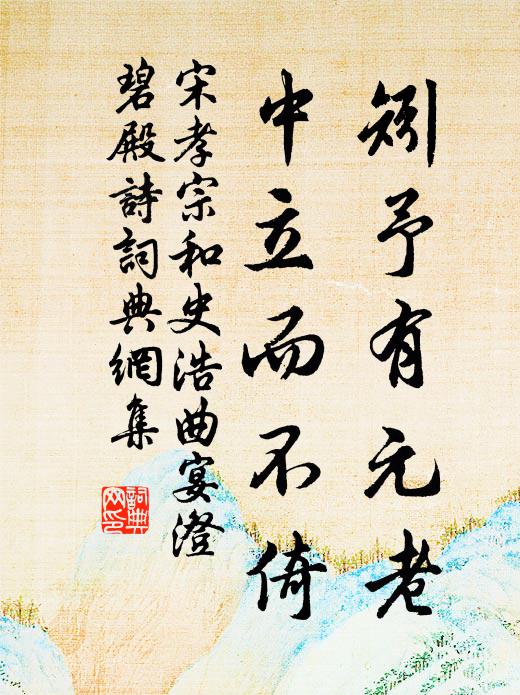 矧予有元老
中立而不倚
宋孝宗和史浩曲宴澄
碧殿詩詞典網集
詞典網印